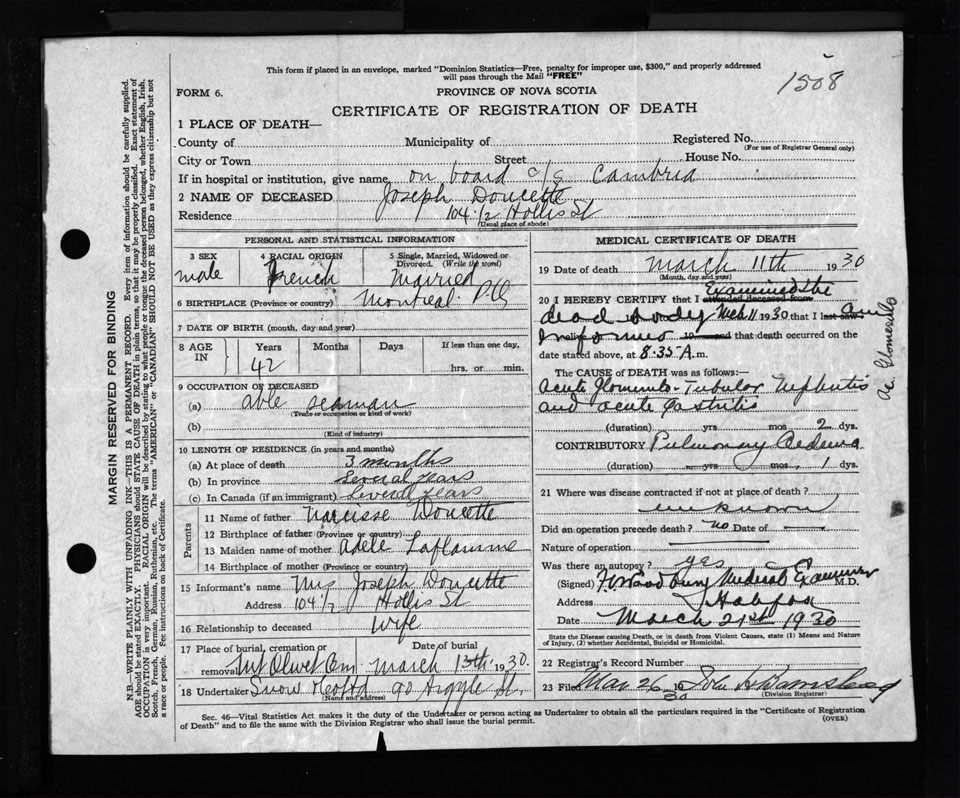 This form if placed in an envelope, marked "Dominion Statistics—Free, penalty for improper use, $300," and properly addressed
will pass through the Mail "FREE"
1508
FORM 6.
PROVINCE OF NOVA SCOTIA
CERTIFICATE OF REGISTRATION OF DEATH
1 PLACE OF DEATH—
County of Municipality of Registered No.
(For use of Registrar General only)
City or Town Street House No.
If in hospital or institution, give name on board c/s Cambria
2 NAME OF DECEASED Joseph Doucette
Residence 104 1/2 Hollis St
(Usual place of abode)
PERSONAL AND STATISTICAL INFORMATION
3 SEX 4 RACIAL ORIGIN 5 Single, Married, Widowed or
Divorced. (Write the word)
male French Married
6 BIRTHPLACE (Province or country) Montreal P.Q
7 DATE OF BIRTH (month, day and year)
8 AGE IN Years Months Days If less than one day,
42 hrs. or min.
9 OCCUPATION OF DECEASED
(a) able seaman
(Trade or occupation or kind of work)
(b)
(Kind of industry)
10 LENGTH OF RESIDENCE (in years and months)
(a) At place of death 3 months
(b) In province Several years
(c) In Canada (if an immigrant) Several years
Parents
11 Name of father Narcisse Doucette
12 Birthplace of father (Province or country)
13 Maiden name of mother Adele Laflamme
14 Birthplace of mother (Province or country)
15 Informant's name Mrs Joseph Doucette
Address 104 1/2 Hollis St
16 Relationship to deceased wife
17 Place of burial, cremation or Date of burial
removal Mt Olivet Cem March 13th 1930.
18 Undertaker Snow 90 Argyle St.
(Name and address)
MEDICAL CERTIFICATE OF DEATH
19 Date of death March 11th 1930
(Month, day and year)
Examined the
20 I HEREBY CERTIFY that I attended deceased from
dead body Mch 11 1930 that I last saw am
Informed 19 that death occurred on the
date stated above, at 8.35 A.m.
The CAUSE OF DEATH was as follows:—
Acute Glomerulo-Tubular Nephritis
and acute Gastritis
(duration) yrs mos 2 dys.
CONTRIBUTORY Pulmonary Oedema
(duration) yrs mos., 1 dys.
21 Where was disease contracted if not at place of death?
unknown
Did an operation precede death? no Date of
Nature of operation
Was there an autopsy? yes
(Signed) Woodbury Medical Examiner M.D.
Address Halifax
Date March 21st 1930
State the Disease causing Death, or in death from Violent Causes, state (1) Means and Nature
of Injury, (2) whether Accidental, Suicidal or Homicidal.
22 Registrars Record Number
23 Filed Mar 26 19 30 John
(Division Registrar)
Sec. 46—Vital Statistics Act makes it the duty of the Undertaker or person acting as Undertaker to obtain all the particulars required in the "Certificate of Registration
of Death" and to file the same with the Division Registrar who shall issue the burial permit. (OVER)
MARGIN RESERVED FOR BINDING
N.B.—WRITE PLAINLY WITH UNFADING INK—THIS IS A PERMANENT RECORD. Every item of information should be carefully supplied.
AGE should be stated EXACTLY. PHYSICIANS should STATE CAUSE OF DEATH in plain terms, so that it may be properly classified. Exact statement of
OCCUPATION is very important. RACIAL ORIGIN will be described by stating to what people or tongue the deceased person belonged, whether English, Irish,
Scotch, French, German, Russian, Ruthenian, etc. The terms "AMERICAN" or "CANADIAN" SHOULD NOT BE USED as they express citizenship but not
a race or people. Fee instructions on back of Certificate.
Ac. Glomerulo